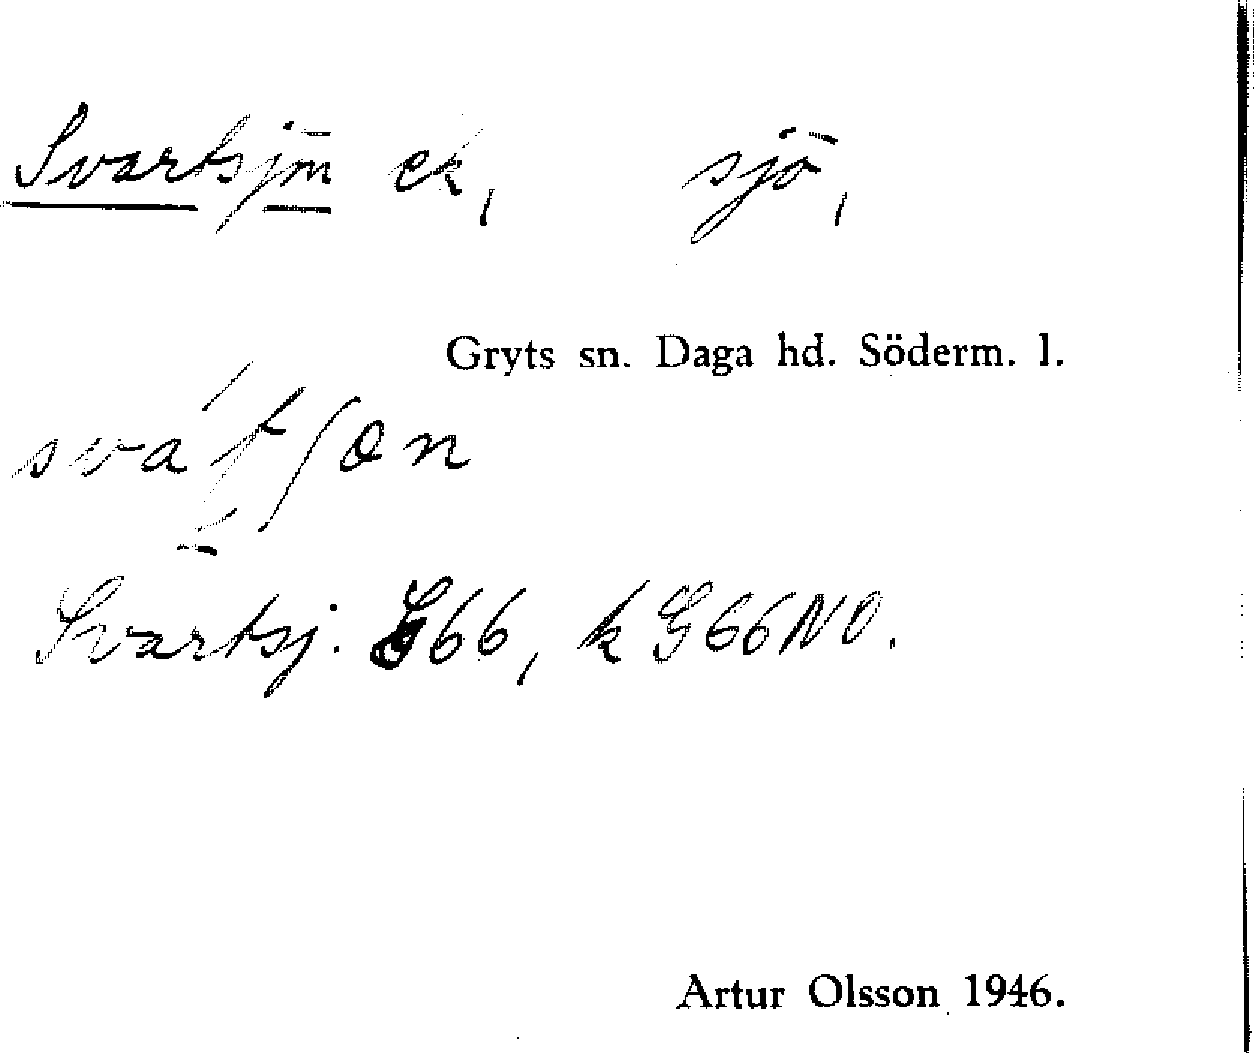 Svartsjön ek, sjö,
Gryts sn. Daga hd. Söderm. l.
Svartsj. G66, k G66NO.
Artur Olsson 1946.